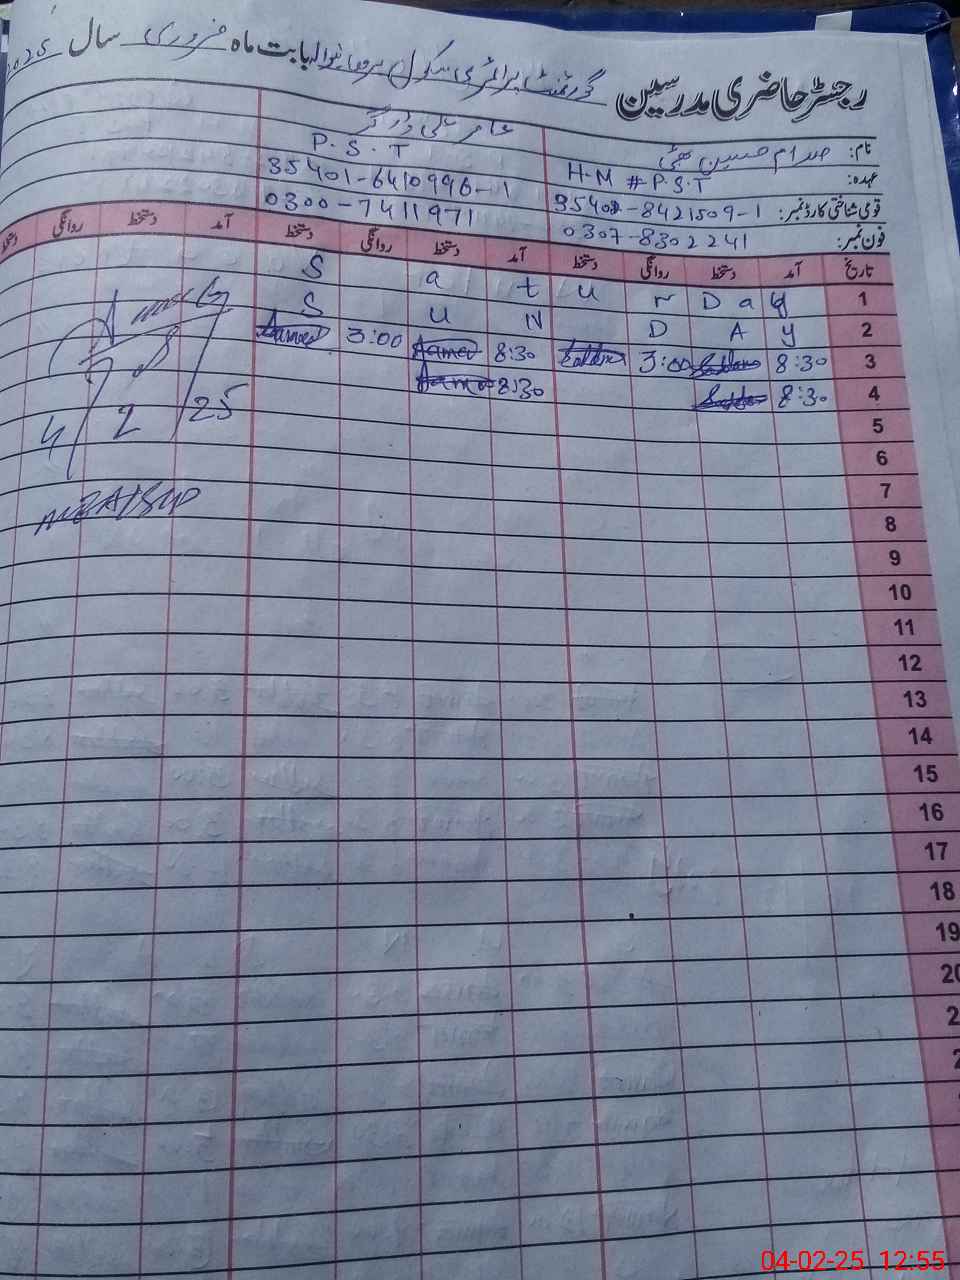 رجسٹر حاضری مدرسین گورنمنٹ پرائمری سکول بابت ماہ فروری سال 2025
نام: صدام حسین بھٹی عامر علی ڈوگر
عہدہ: H.M # P.S.T P.S.T
قومی شناختی کارڈ نمبر: 35402-8421509-1 35401-6410996-1
فون نمبر: 0307-8302241 0300-7411971
تاریخ آمد دستخط روانگی دستخط آمد دستخط روانگی دستخط آمد دستخط روانگی دستخط
1 S a t u r D a y
2 S u N D A y
3 8:30 3:00 8:30 Aamer 3:00
4 8:30 8:30
5
6
7
8
9
10
11
12
13
14
15
16
17
18
19
4/2/25
04-02-25 12:55